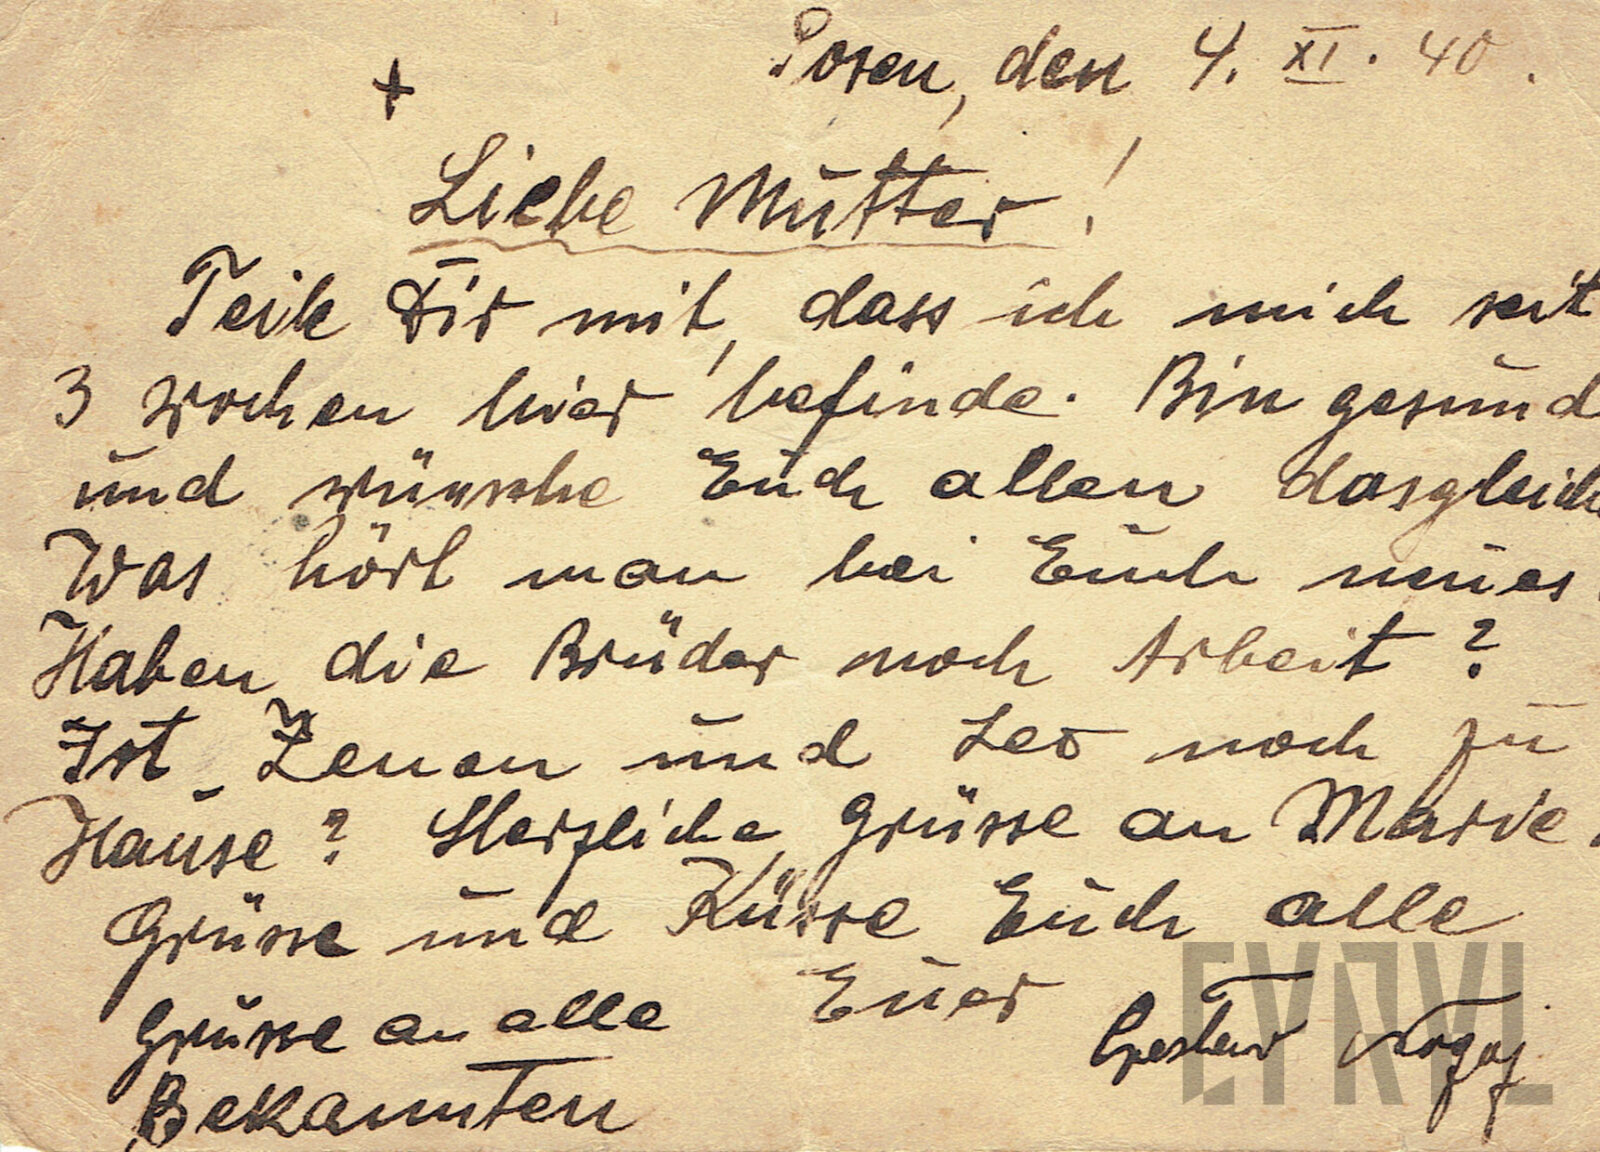 Posen, den 4. XI. 40.
+
Liebe Mutter!
Teile Dir mit, dass ich mich seit
3 Wochen hier befinde. Bin gesund
und wünsche Euch allen dasgleiche
Was hört man bei Euch neues.
Haben die Brüder noch Arbeit?
Ist Zenon und Leo noch zu
Hause? Herzliche Grüsse an Marie.
Grüsse und Küsse Euch alle
Euer
Grüsse an alle
Bekannten
EYRYL